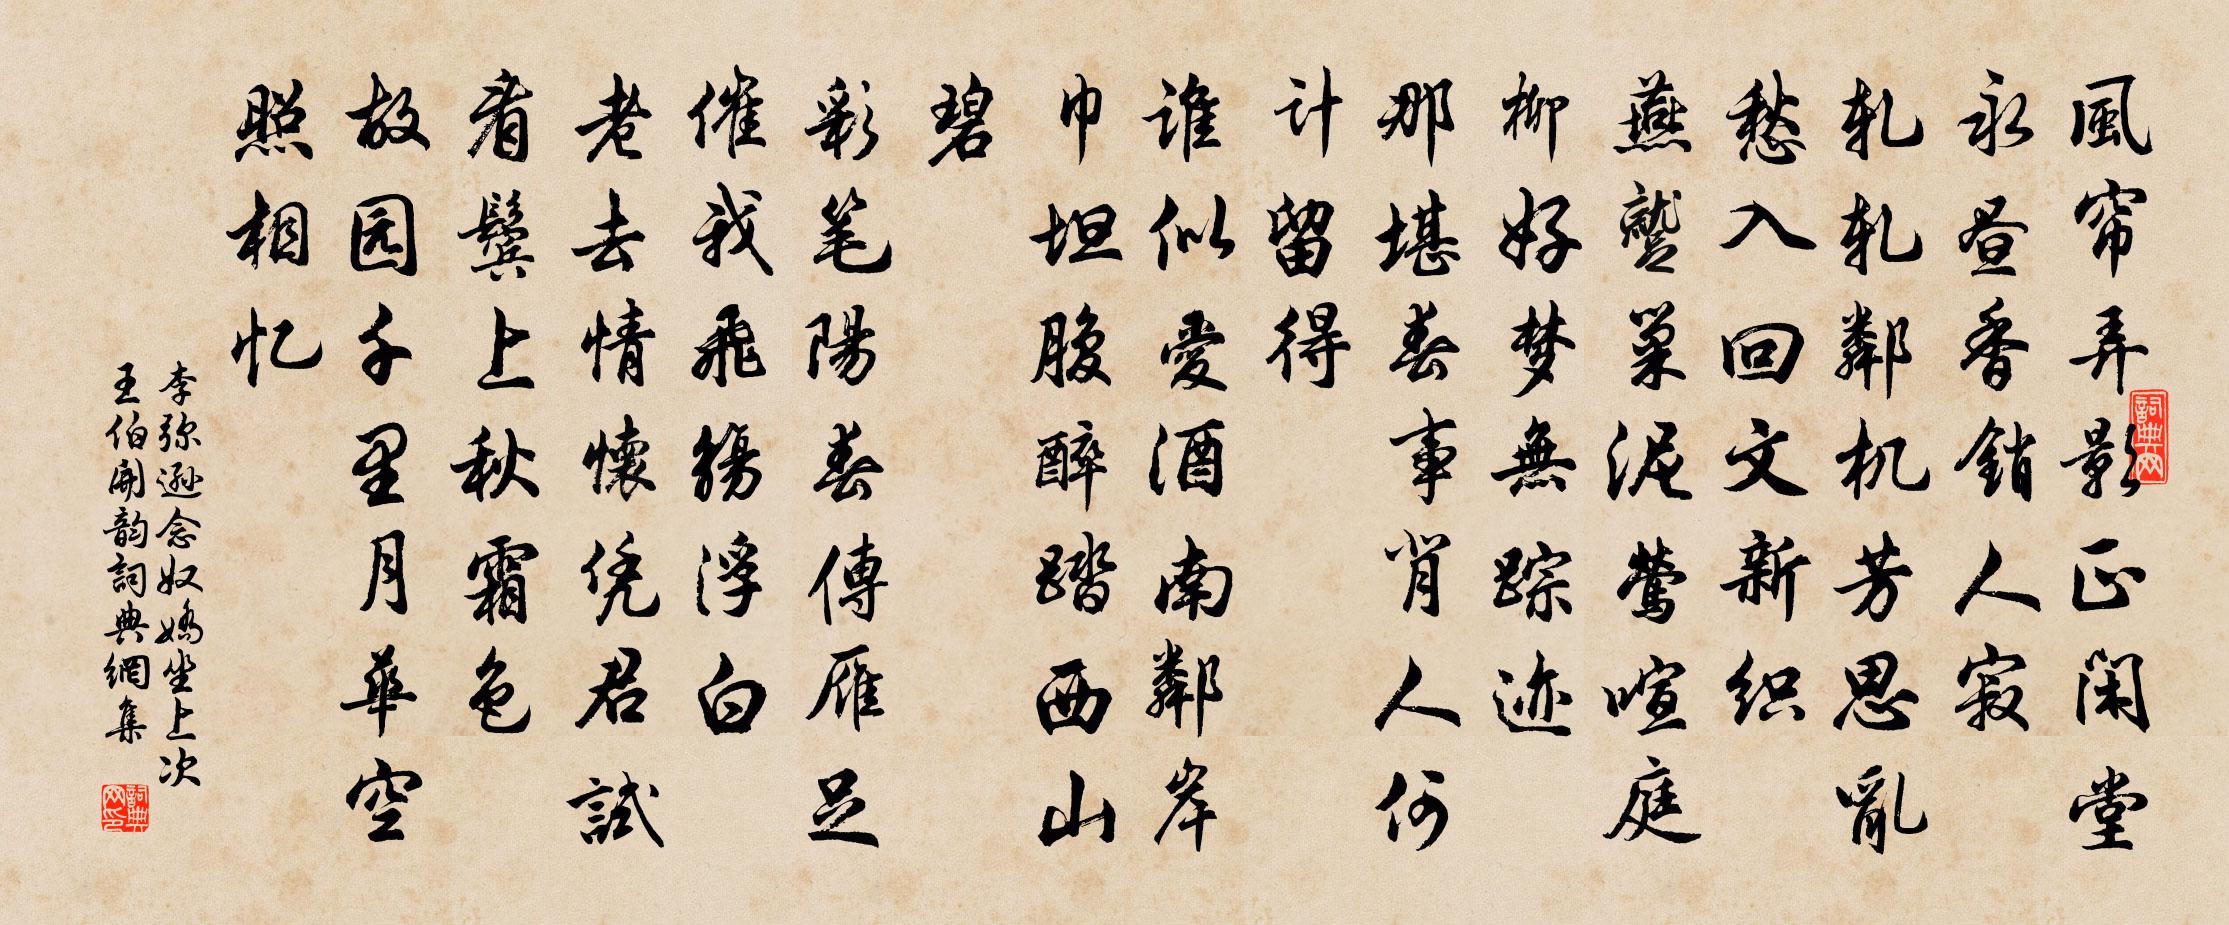 風帘弄影正闲堂
永昼香銷人寂
轧轧鄰机芳思亂
愁入回文新织
燕蹙巢泥莺喧庭
柳好梦無踪迹
那堪春事背人何
计留得
谁似爱酒南鄰岸
巾坦腹醉踏西山
碧
彩笔陽春傳雁足
催我飛觞浮白
老去情懷凭君試
看鬓上秋霜色
故园千里月華空
照相忆
李弥逊念奴嬌坐上次
王伯開韵詞典網集
詞典网
詞典网印